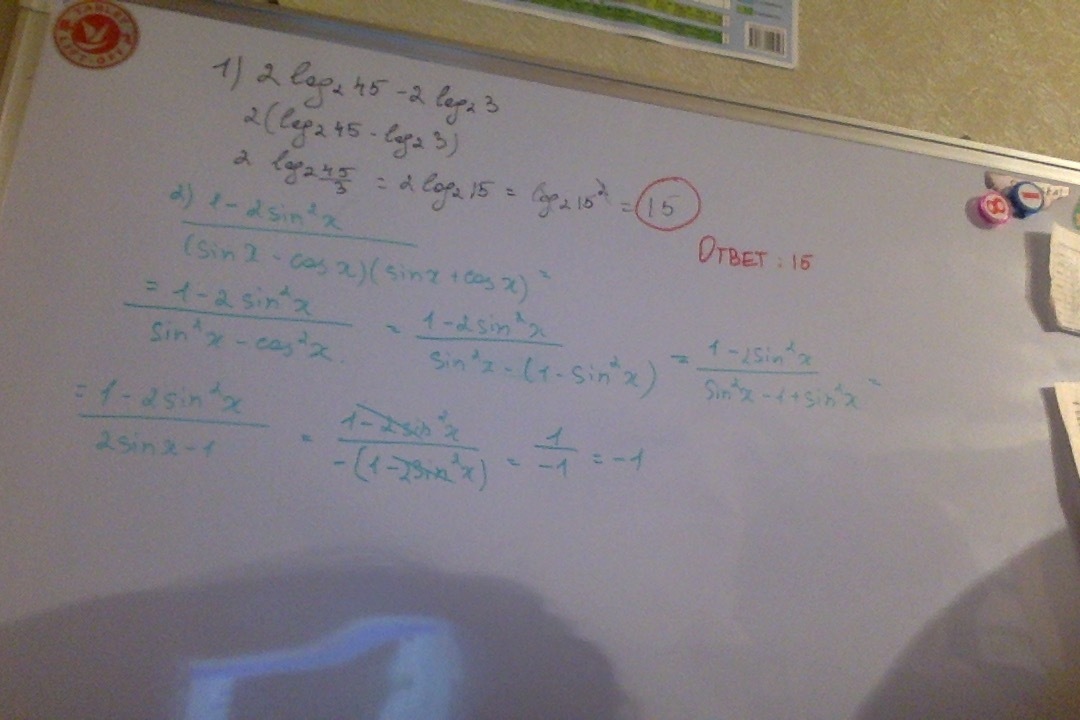 1) 2 log₂ 45 - 2 log₂ 3
2(log₂ 45 - log₂ 3)
2 log₂ 45/3 = 2 log₂ 15 = log₂ 15² = 15
Ответ: 15
2) (1 - 2sin²x)/((sin x - cos x)(sin x + cos x)) =
= (1 - 2 sin²x)/(sin²x - cos²x) = (1 - 2sin²x)/(sin²x - (1 - sin²x)) = (1 - 2sin²x)/(sin²x - 1 + sin²x) =
= (1 - 2 sin²x)/(2 sin x - 1) = (1 - 2 sin²x)/(-(1 - 2sin²x)) = 1/-1 = -1